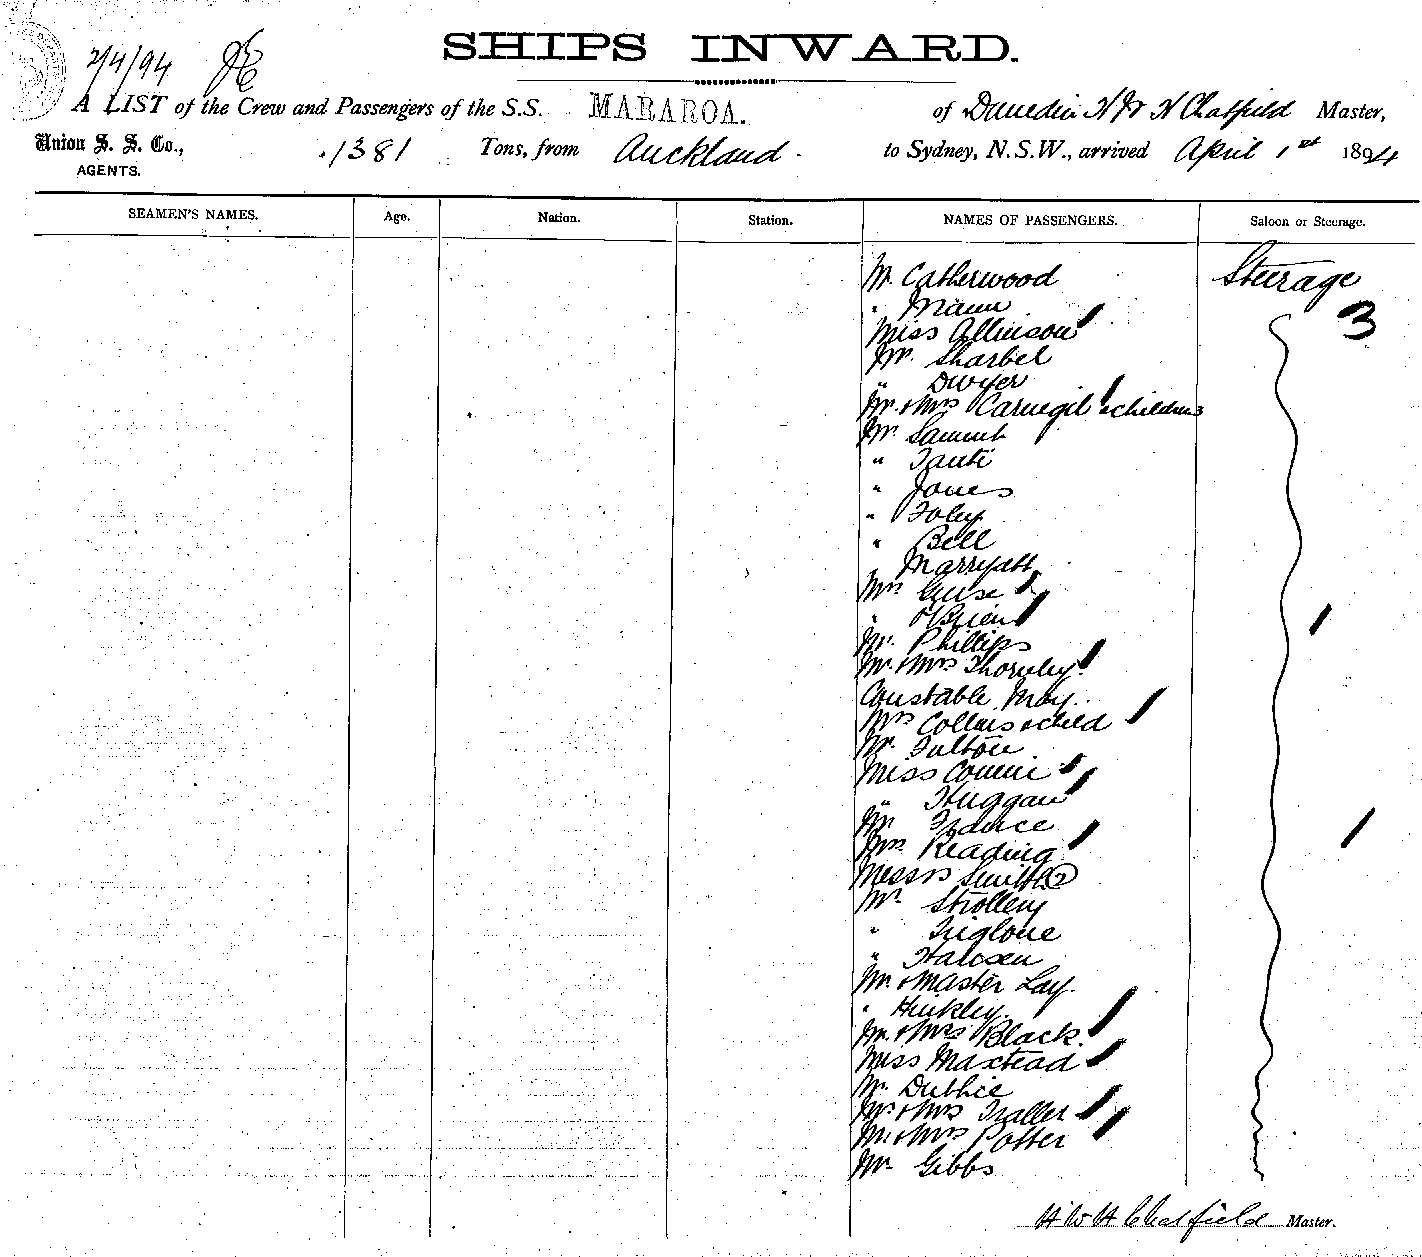 2/4/94
SHIPS INWARD.
A LIST of the Crew and Passengers of the S.S. MARAROA. of Dunedin H W H Chatfield Master,
Union S. S. Co., 1381 Tons, from Auckland. to Sydney, N.S.W., arrived April 1st 1894
AGENTS.
SEAMEN'S NAMES. Age. Nation. Station. NAMES OF PASSENGERS. Saloon or Steerage.
Mr. Catherwood Steerage
" Mann 3
Miss Allinson
Mr. Sharbel
" Dwyer
Mr. & Mrs Carnegil & children 3
Mr. Sammut
" Tanti
" Jones
" Foley
" Bell
" Marryatt
Mrs Guise
" O'Brien
Mr. Phillips
Mr. & Mrs Thornley
Constable May
Mrs Collins & child
Mr. Fulton
Miss
" Huggan
Mr France
Mrs. Reading
Messrs Smith (2)
Mr.
"
" Hansen
Mr & Master Lay
" Hinkley
Mr. & Mrs Black
Miss Maxtead
Mr.
Mr & Mrs
Mr & Mrs Potter
Mr Gibbs
H W H Chatfield Master.